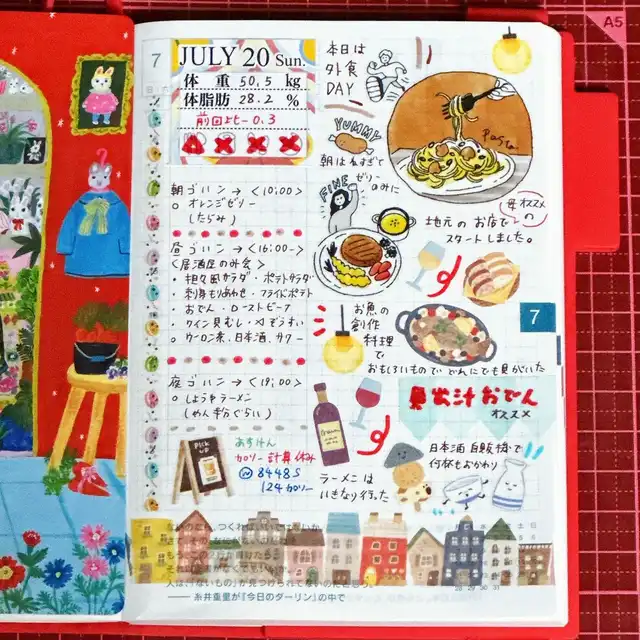 A5
7
JULY 20 Sun.
体 重 50.5 kg
体脂肪 28.2 %
前回より-0.3
本日は
外食
DAY
YUMMY
朝はねすぎて
ゼリー
のみに
FINE
Pasta
母オススメ
の
地元の お店で
スタートしました。
朝ゴハン → <10:00>
○ オレンジゼリー
(たらみ)
昼ゴハン → <16:00~>
<居酒屋のみ会>
・担々風サラダ ・ポテトサラダ
・刺身もりあわせ ・フライドポテト
・おでん ・ローストビーフ
・ワイン貝むし ・〆ぞうすい
○ ウーロン茶、日本酒、サワー
お魚の
創作
料理
で
おもしろいもので どれにでも貝がいた
7
貝出汁おでん
オススメ
夜ゴハン → <19:00>
○ しょうゆラーメン
(やん半分ぐらい)
PICK UP
あすけん
カロリー計算休み
8448S
124カロリー
ラーメンは
いきなり行った
日本酒 自販機で
何杯もおかわり
人は、「ないもの」が見つけられてないのだと思う
── 糸井重里が『今日のダーリン』の中で
月 火 水 木 金 土 日
28 29 30 31